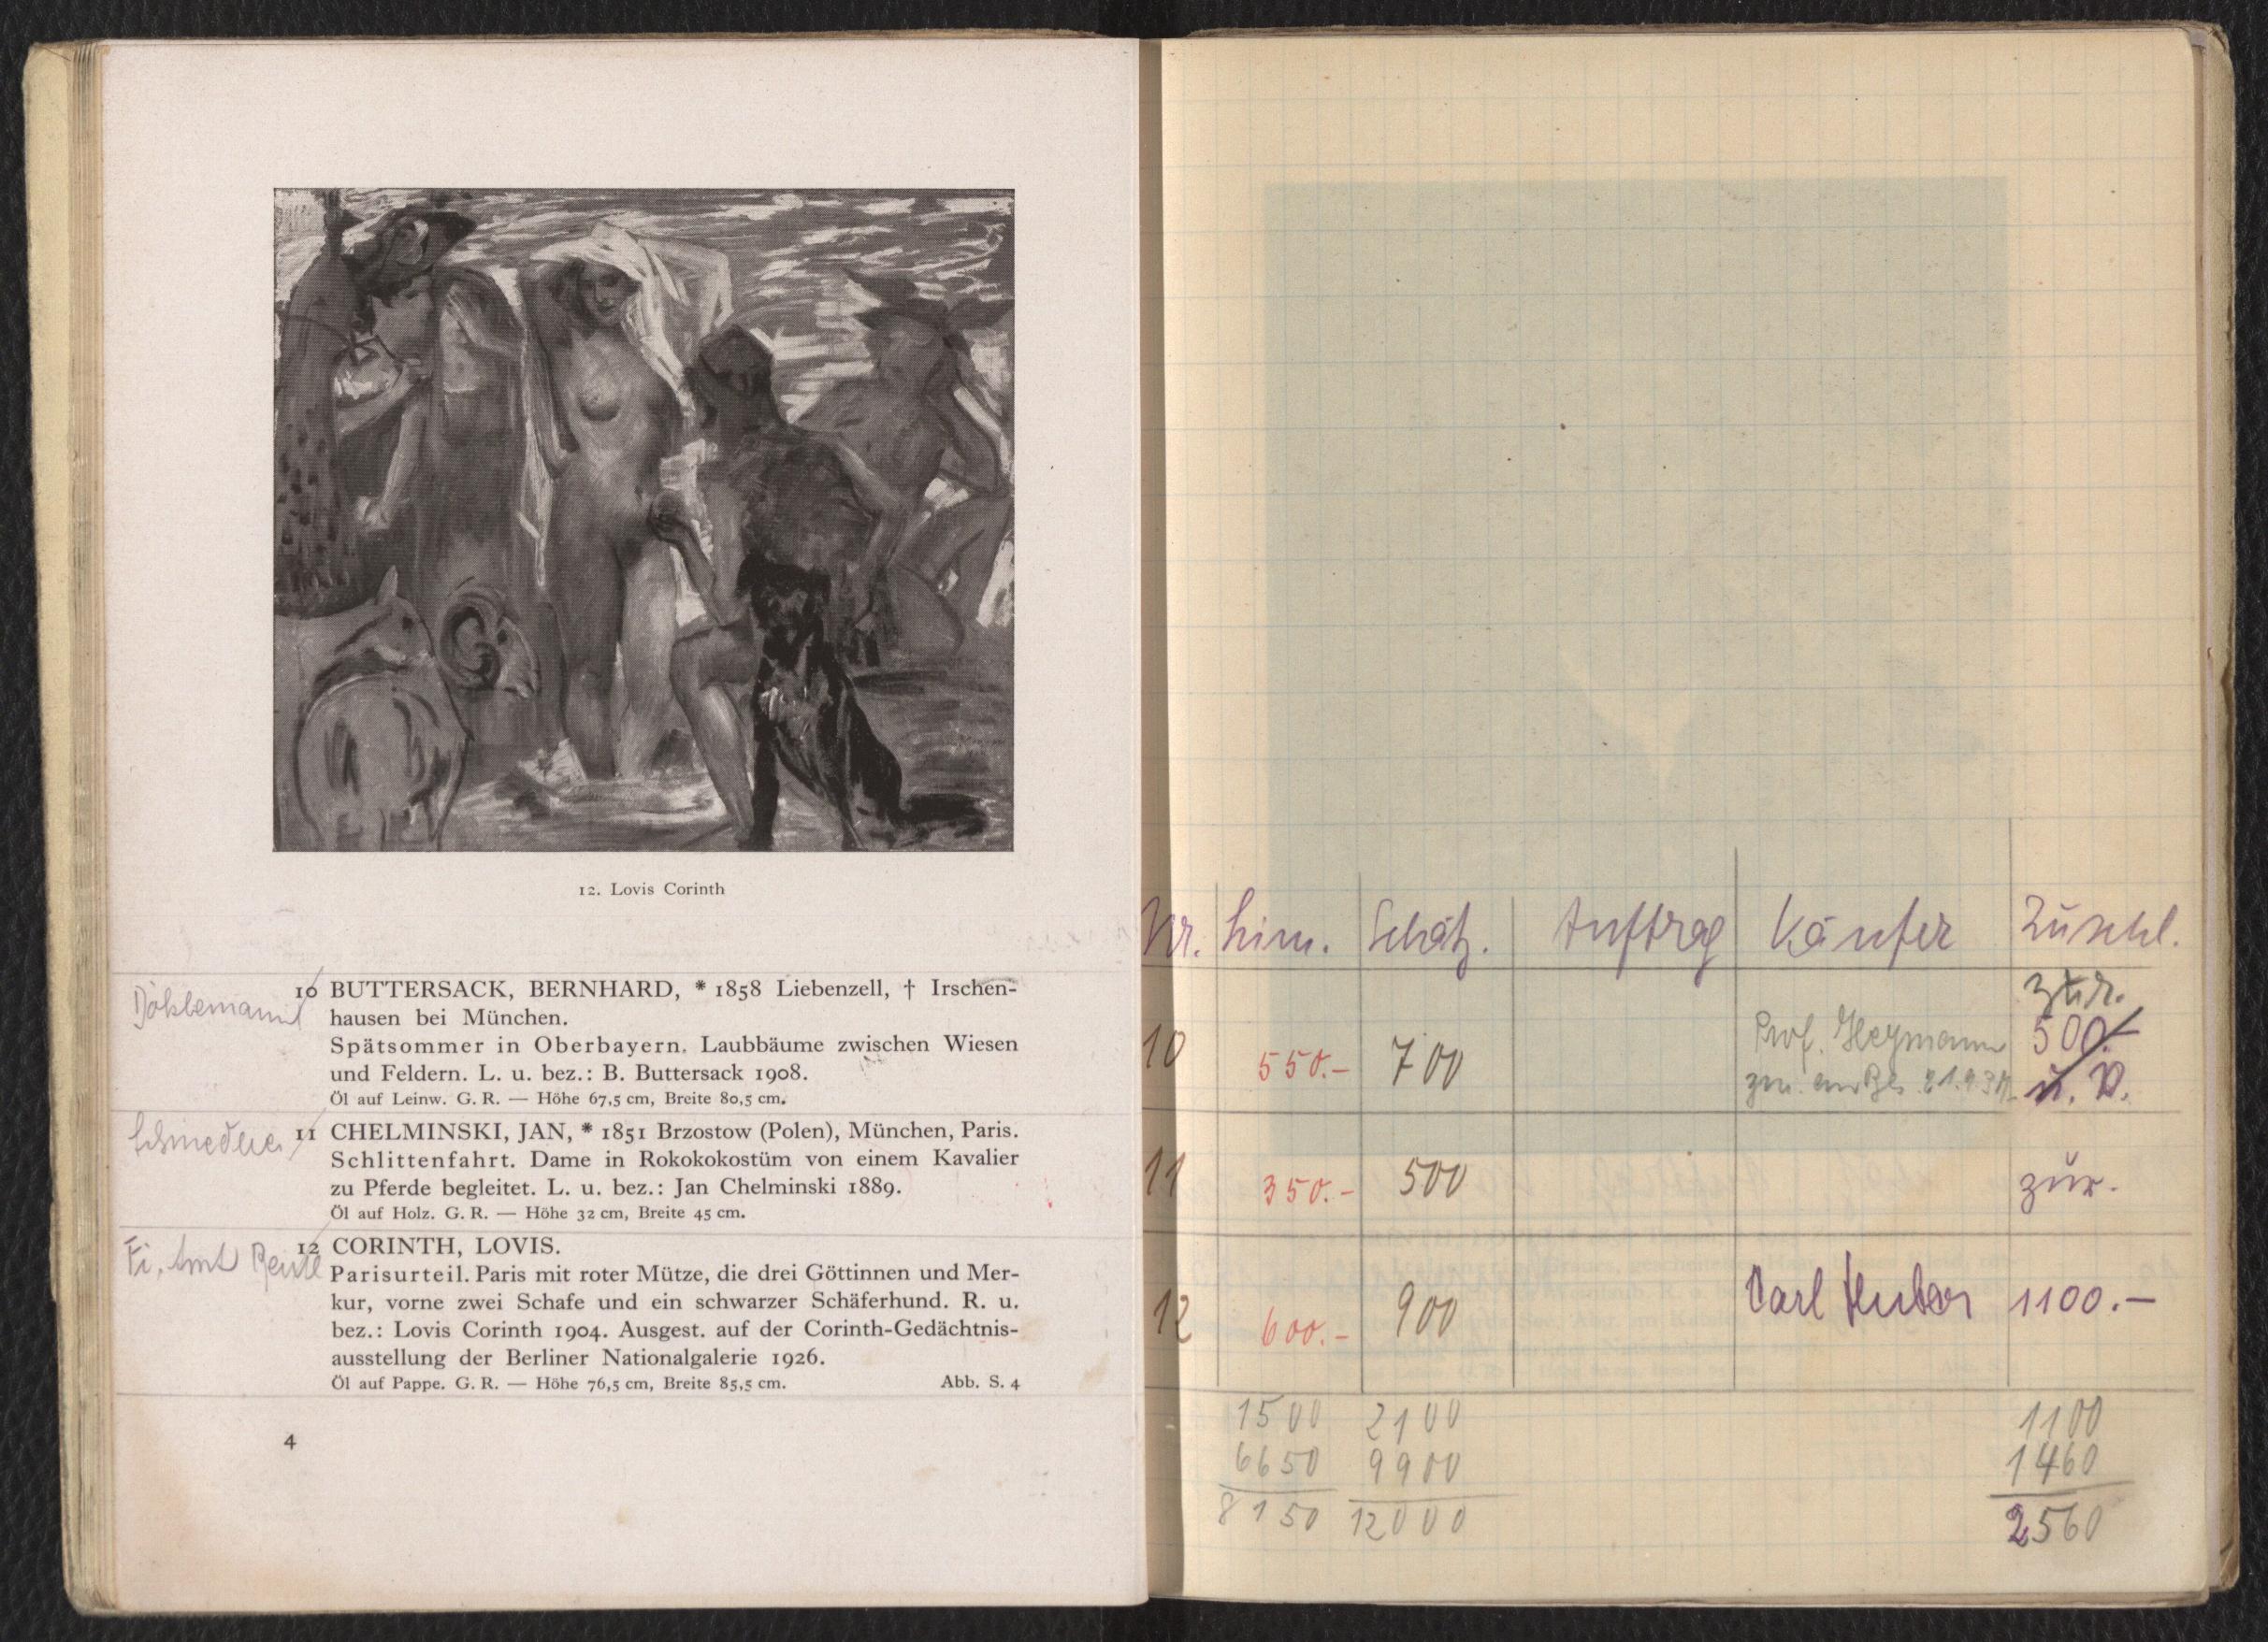 12. Lovis Corinth
10 BUTTERSACK, BERNHARD, * 1858 Liebenzell, † Irschen-
hausen bei München.
Spätsommer in Oberbayern. Laubbäume zwischen Wiesen
und Feldern. L. u. bez.: B. Buttersack 1908.
Öl auf Leinw. G. R. — Höhe 67,5 cm, Breite 80,5 cm.
11 CHELMINSKI, JAN, * 1851 Brzostow (Polen), München, Paris.
Schlittenfahrt. Dame in Rokokokostüm von einem Kavalier
zu Pferde begleitet. L. u. bez.: Jan Chelminski 1889.
Öl auf Holz. G. R. — Höhe 32 cm, Breite 45 cm.
Fi. Amt
12 CORINTH, LOVIS.
Parisurteil. Paris mit roter Mütze, die drei Göttinnen und Mer-
kur, vorne zwei Schafe und ein schwarzer Schäferhund. R. u.
bez.: Lovis Corinth 1904. Ausgest. auf der Corinth-Gedächtnis-
ausstellung der Berliner Nationalgalerie 1926.
Öl auf Pappe. G. R. — Höhe 76,5 cm, Breite 85,5 cm. Abb. S. 4
4
Nr. Lim. Schätz. Auftrag Käufer Zuschl.
zur.
10 550.- 700 Prof. Heymann 500.-
ü. V.
11 350.- 500 zur.
12 600.- 900 Carl Huber 1100.-
1500 2100 1100
6650 9900 1460
8150 12000 2560